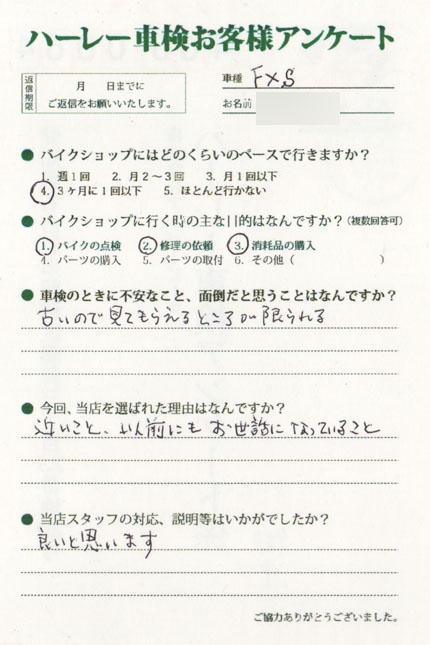 ハーレー車検お客様アンケート
返信期限
月　日までに
ご返信をお願いいたします。
車種 FXS
お名前
● バイクショップにはどのくらいのペースで行きますか？
1. 週1回　2. 月2〜3回　3. 月1回以下
4. 3ヶ月に1回以下　5. ほとんど行かない
● バイクショップに行く時の主な目的はなんですか？(複数回答可)
1. バイクの点検　2. 修理の依頼　3. 消耗品の購入
4. パーツの購入　5. パーツの取付　6. その他（　　　　）
● 車検のときに不安なこと、面倒だと思うことはなんですか？
古いので見てもらえるところが限られる
● 今回、当店を選ばれた理由はなんですか？
近いこと、以前にもお世話になっていること
● 当店スタッフの対応、説明等はいかがでしたか？
良いと思います
ご協力ありがとうございました。